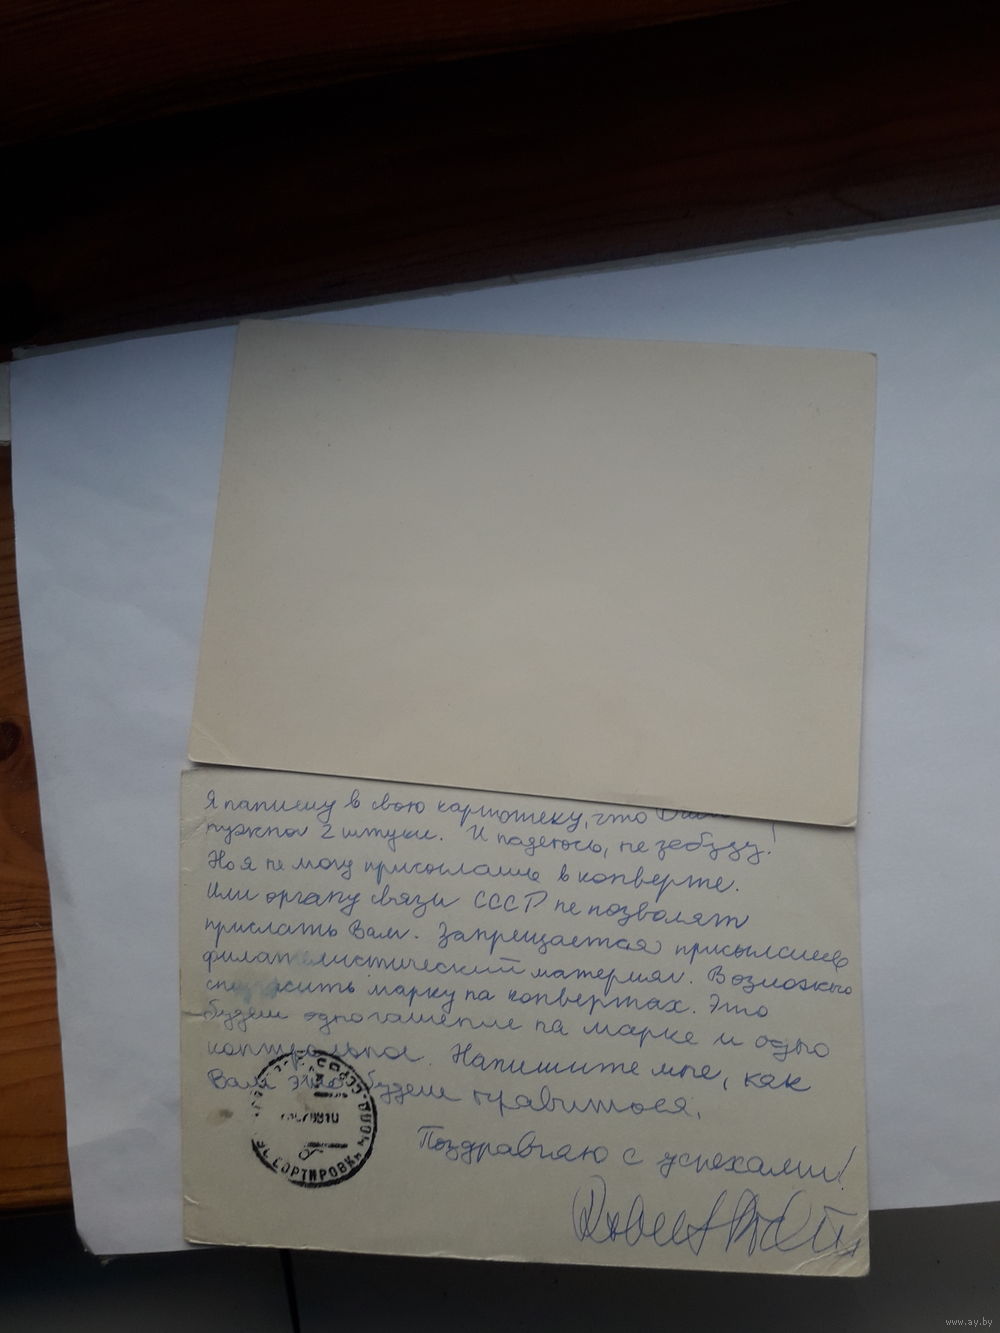 Я напишу в свою картотеку, что
нужно 2 штуки. И надеюсь, не забуду!
Но я не могу присылать в конверте.
Или органу связи СССР не позволят
прислать Вам. Запрещается присылать
филателистический материал. Возможно
марку на конвертах. Это
будет одно гашение на марке и одно
контрольное. Напишите мне, как
Вам это будет нравиться.
Поздравляю с успехами!
СОРТИРОВК
www.ay.by